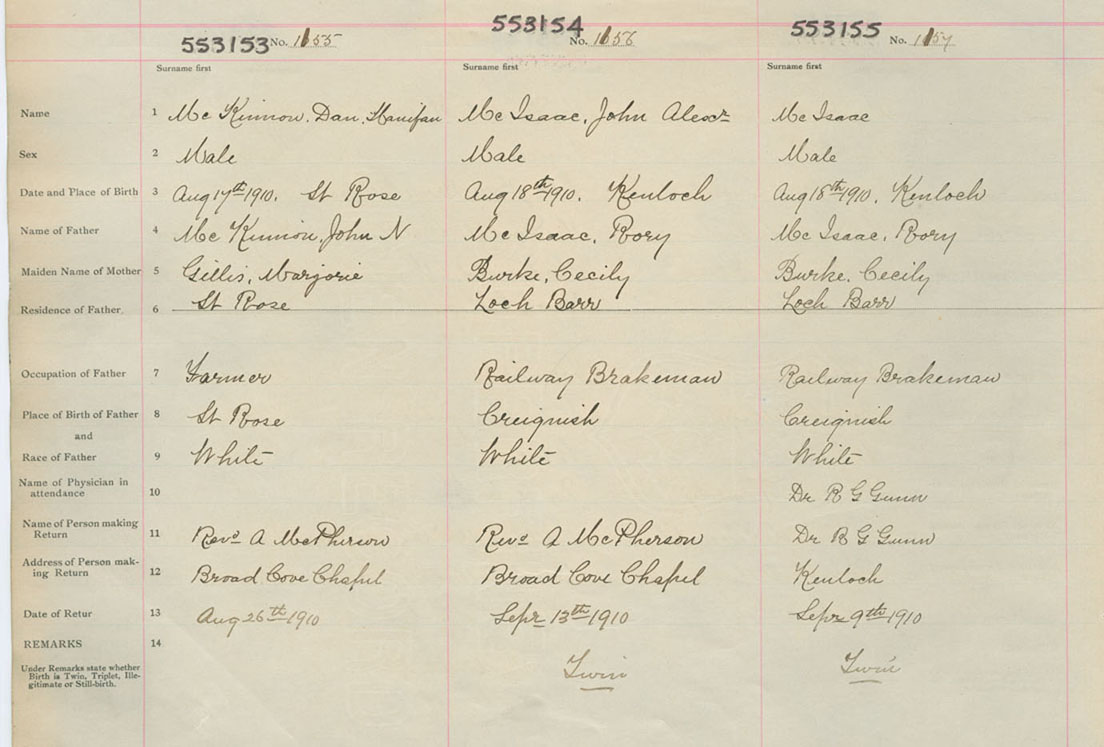 553153 No. 1155 553154 No. 1156 553155 No. 1157
Surname first Surname first Surname first
Name 1 Mc Kinnon, Dan, Hanifan Mc Isaac, John Alexr Mc Isaac
Sex 2 Male Male Male
Date and Place of Birth 3 Aug 17th 1910. St Rose Aug 18th 1910. Kenloch Aug 18th 1910. Kenloch
Name of Father 4 Mc Kinnon, John N Mc Isaac, Rory Mc Isaac, Rory
Maiden Name of Mother 5 Gillis, Marjorie Burke, Cecily Burke, Cecily
Residence of Father 6 St Rose Loch Barr Loch Barr
Occupation of Father 7 Farmer Railway Brakeman Railway Brakeman
Place of Birth of Father 8 St Rose Creignish Creignish
and
Race of Father 9 White White White
Name of Physician in
attendance 10 Dr R G Gunn
Name of Person making
Return 11 Revd A McPherson Revd A McPherson Dr R G Gunn
Address of Person mak-
ing Return 12 Broad Cove Chapel Broad Cove Chapel Kenloch
Date of Retur 13 Aug 26th 1910 Sepr 13th 1910 Sepr 9th 1910
REMARKS 14
Under Remarks state whether
Birth is Twin, Triplet, Ille-
gitimate or Still-birth.
Twin Twin